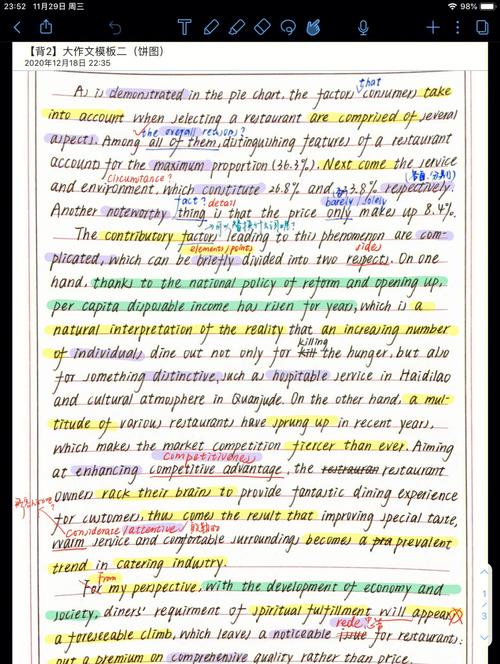 23:52 11月29日 周三
98%
【背2】大作文模板二（饼图）
2020年12月18日 22:35
that
As is demonstrated in the pie chart, the factors consumers take
into account when selecting a restaurant are comprised of several
the overall reasons?
aspects. Among all of them, distinguishing features of a restaurant
accounts for the maximum proportion (36.3%). Next come the service
circumstance?
and environment, which constitute 26.8% and 23.8% respectively.
fact? detail
barely / solely
Another noteworthy thing is that the price only makes up 8.4%.
The contributory factors leading to this phenomenon are com-
elements/points
sides
plicated, which can be briefly divided into two respects. On one
hand, thanks to the national policy of reform and opening up,
per capita disposable income has risen for years, which is a
natural interpretation of the reality that an increasing number
killing
of individuals dine out not only for kill the hunger, but also
for something distinctive, such as hospitable service in Haidilao
and cultural atmosphere in Quanjude. On the other hand, a mul-
titude of various restaurants have sprung up in recent years,
which makes the market competition fiercer than ever. Aiming
competitiveness
at enhancing competitive advantage, the restauran restaurant
owners rack their brains to provide fantastic dining experience
for customers, thus comes the result that improving special taste,
considerate/attentive
warm service and comfortable surroundings becomes a pra prevalent
trend in catering industry.
From
For my perspective, with the development of economy and
society, diners' requirment of spiritual fulfillment will appear
a foreseeable climb, which leaves a noticeable issue for restaurants:
put a premium on comprehensive quality rather than price.
1
3